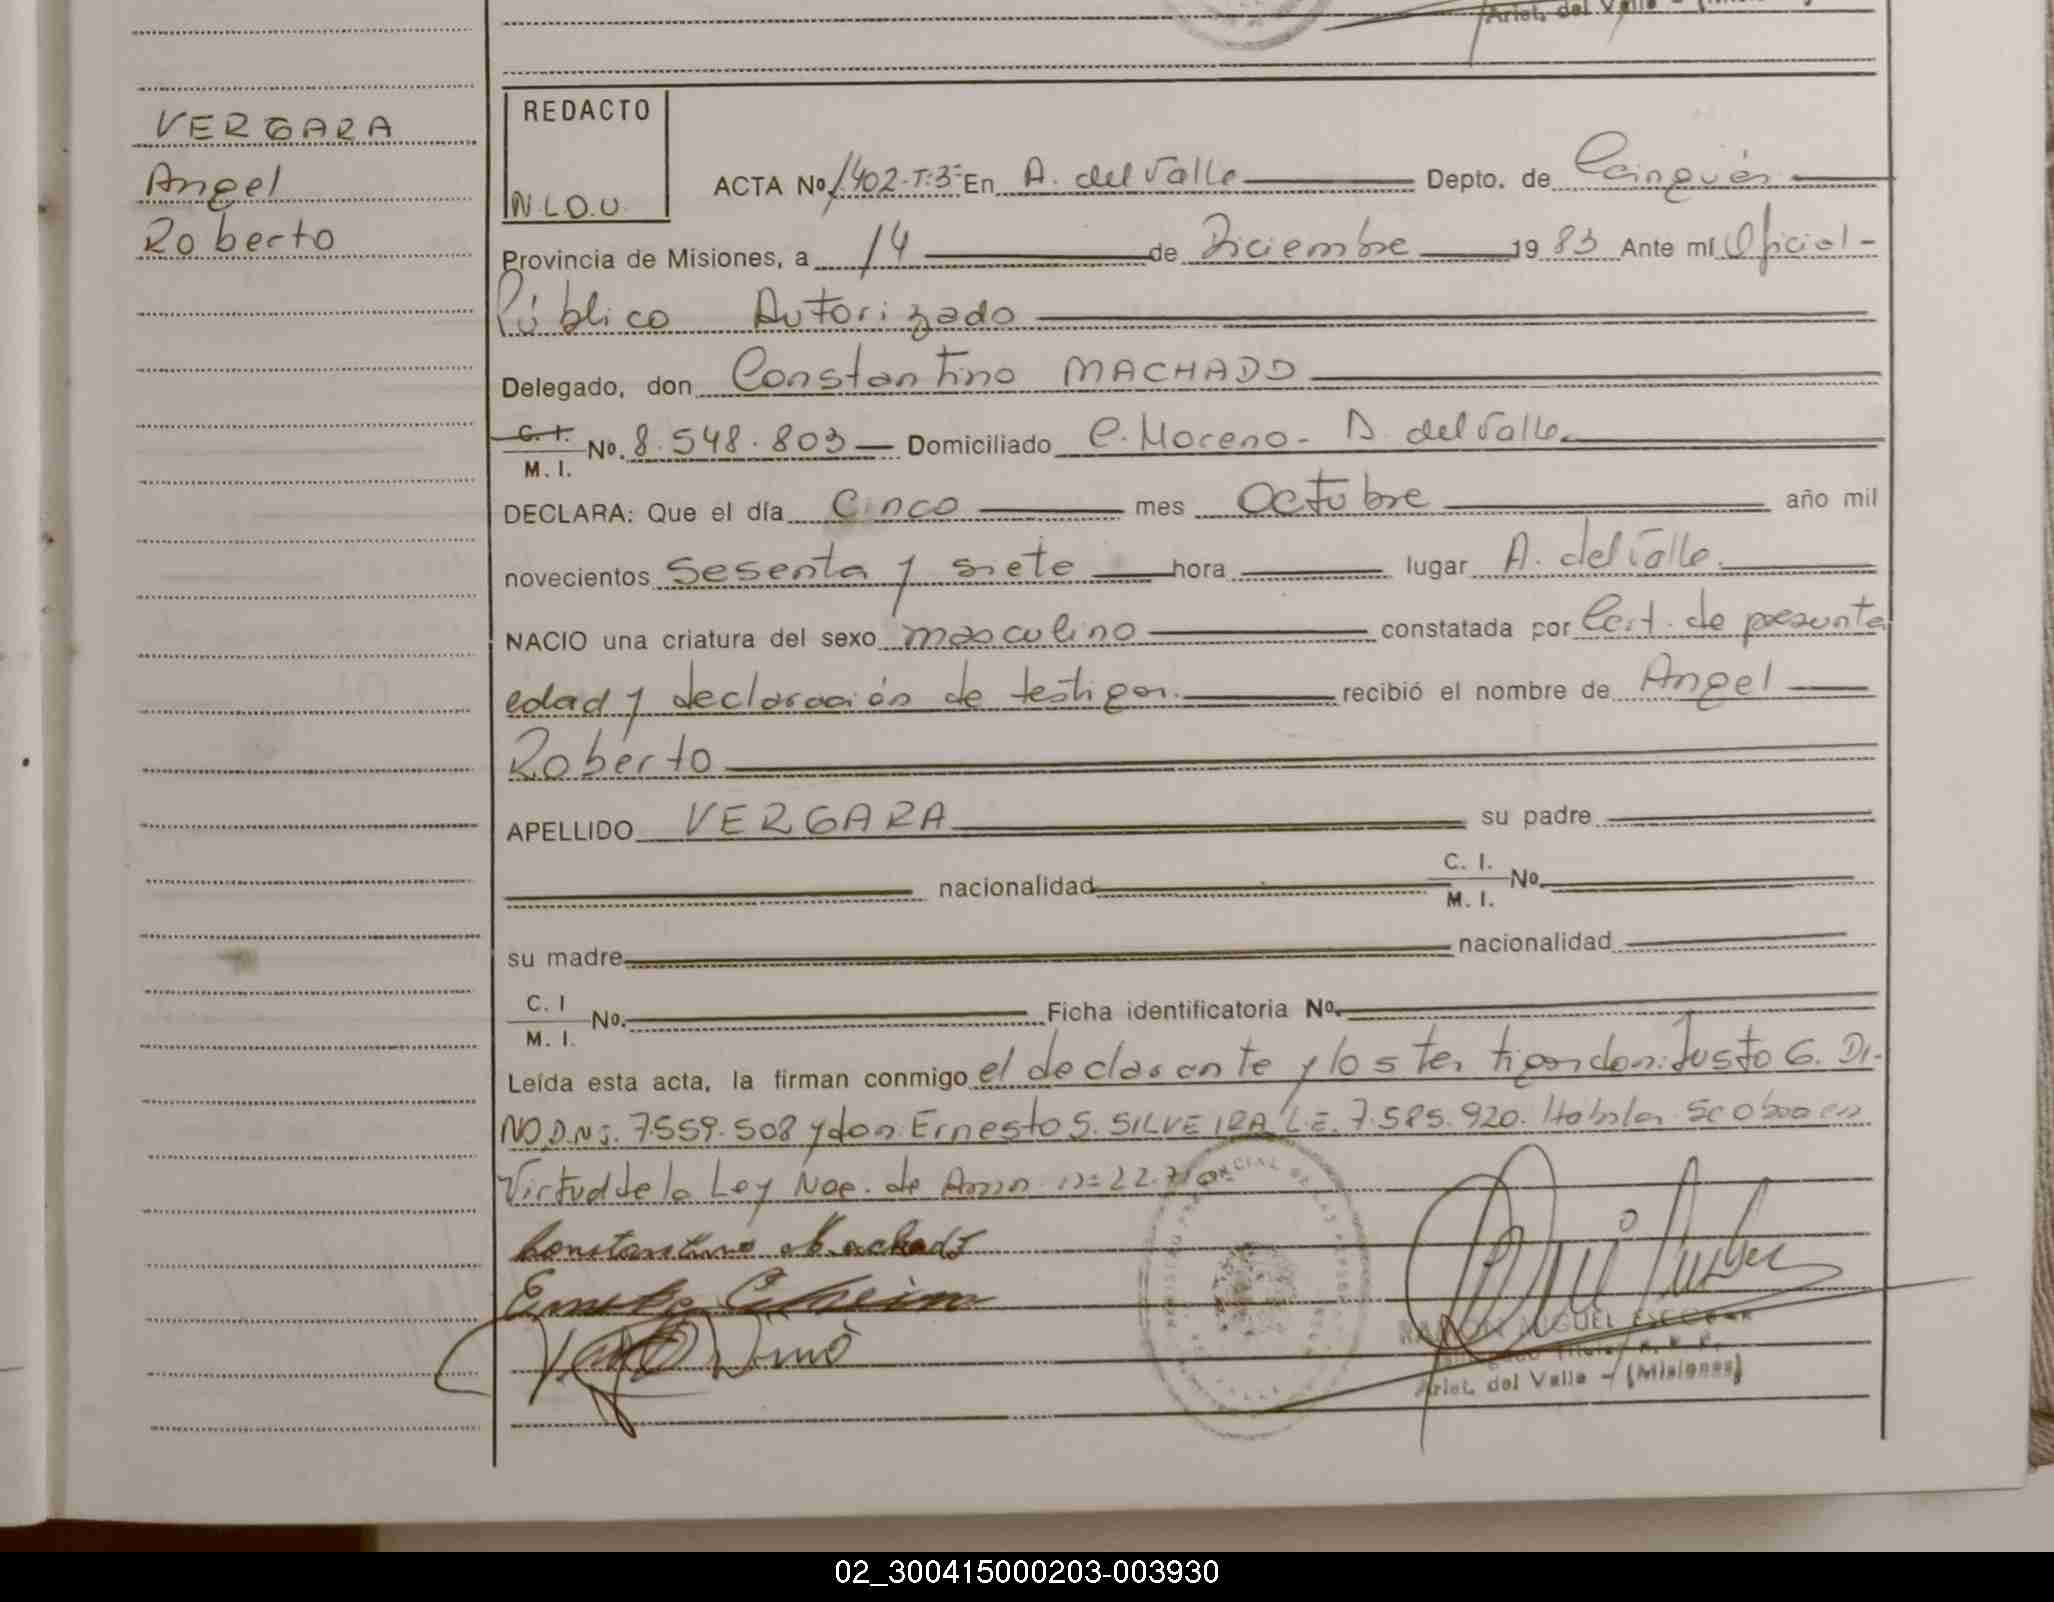 Arist. del Valle - (Misiones)
VERGARA
Angel
Roberto
REDACTO
N.L.O.U.
ACTA No 1.402-T:3- En A. del Valle Depto. de Cainguás
Provincia de Misiones, a 14 de Diciembre 1983 Ante mí Oficial-
Público Autorizado
Delegado, don Constantino MACHADO
C. I.
M. I. No. 8.548.803 Domiciliado C. Moreno - A. del Valle
DECLARA: Que el día Cinco mes Octubre año mil
novecientos Sesenta y siete hora lugar A. del Valle
NACIO una criatura del sexo masculino constatada por Cert. de presunta
edad y declaración de testigos. recibió el nombre de Angel
Roberto
APELLIDO VERGARA su padre
nacionalidad C. I. M. I. No.
su madre nacionalidad
C. I M. I. No. Ficha identificatoria No.
Leída esta acta, la firman conmigo el declarante y los testigos don: Justo G. DI-
NO D.N.I. 7.559.508 y don: Ernesto S. SILVEIRA L.E. 7.585.920.
Virtud de la Ley Nac. de
Constantino Machado
RAMON MIGUEL ESCOBAR
Arist. del Valle - (Misiones)
02_300415000203-003930